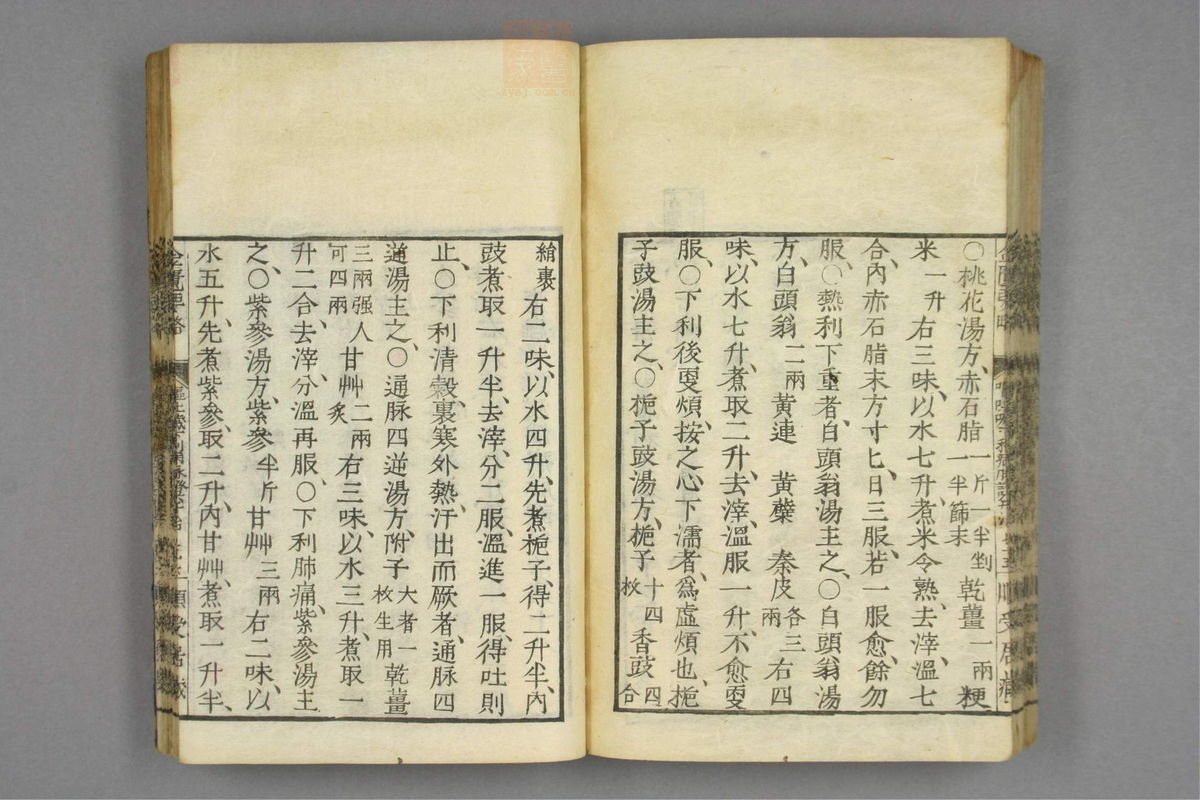 ○桃花湯方、赤石脂一斤一半剉一半篩末乾薑一兩粳
米一升右三味、以水七升、煮米令熟、去滓、溫七
合、內赤石脂末方寸匕、日三服、若一服愈、餘勿
服、○熱利下重者、白頭翁湯主之、○白頭翁湯
方、白頭翁二兩黃連 黃蘗 秦皮各三兩右四
味、以水七升、煮取二升、去滓、溫服一升、不愈更
服、○下利後更煩、按之心下濡者、爲虛煩也、梔
子豉湯主之、○梔子豉湯方、梔子十四枚香豉四合
綃裹右二味、以水四升、先煮梔子、得二升半、內
豉煮取一升半、去滓、分二服、溫進一服、得吐則
止、○下利清穀、裏寒外熱、汗出而厥者、通脉四
逆湯主之、○通脉四逆湯方、附子大者一枚生用乾薑
三兩强人可四兩甘艸二兩炙右三味、以水三升、煮取一
升二合、去滓、分溫再服、○下利肺痛、紫參湯主
之、○紫參湯方、紫參半斤甘艸三兩右二味、以
水五升、先煮紫參、取二升、內甘艸、煮取一升半、
金匱要略